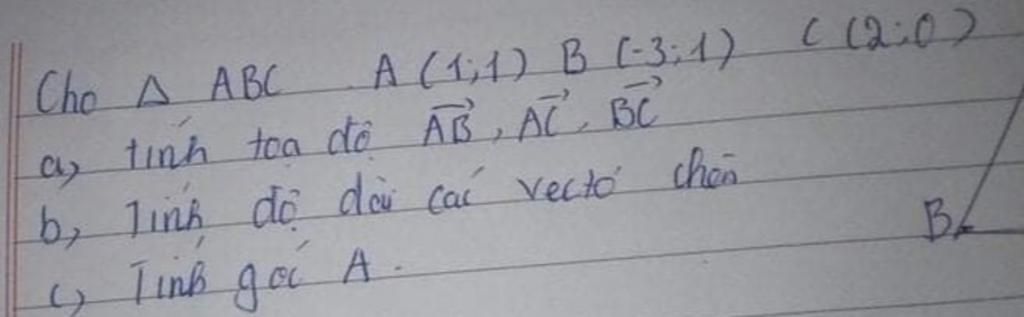 Cho Δ ABC A (1;1) B (-3;1) C (2;0)
a, tính toạ độ \overrightarrow{AB}, \overrightarrow{AC}, \overrightarrow{BC}
b, Tính độ dài các vectơ
c, Tính góc A.
B